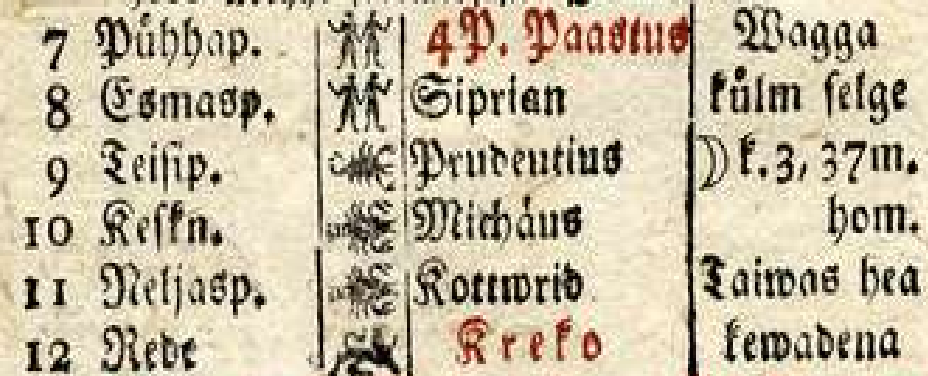 7 Pühhap. 4 P. Paastus Wagga
8 Esmasp. Siprian külm selge
9 Teisip. Prudentius ☽ k. 3, 37m.
10 Keskn. Michäus hom.
11 Neljasp. Kottwrid Taiwas hea
12 Rede Kreko kewadena